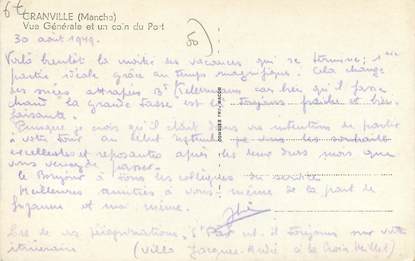 6€
50
GRANVILLE (Manche)
Vue Générale et un coin du Port
30 août 1949.
Voilà bientôt la moitié des vacances qui se termine; 1ère
partie idéale grâce au temps magnifique. Cela change
des soirées attrapées Bd car bien qu'il fasse
chaud la grande tasse est toujours fraîche et bien
faisante.
Puisque je crois qu'il était dans vos intentions de partir
à votre tour au début septembre je vous les souhaite
excellentes et reposantes après les deux durs mois que
vous venez de passer.
Le Bonjour à tous les collègues du service
Meilleures amitiés à vous même de la part de
Suzanne et moi même.
Lieu de vos pérégrinations, St Pair est toujours sur votre
itinéraire (Villa Jacques-André à la Croix